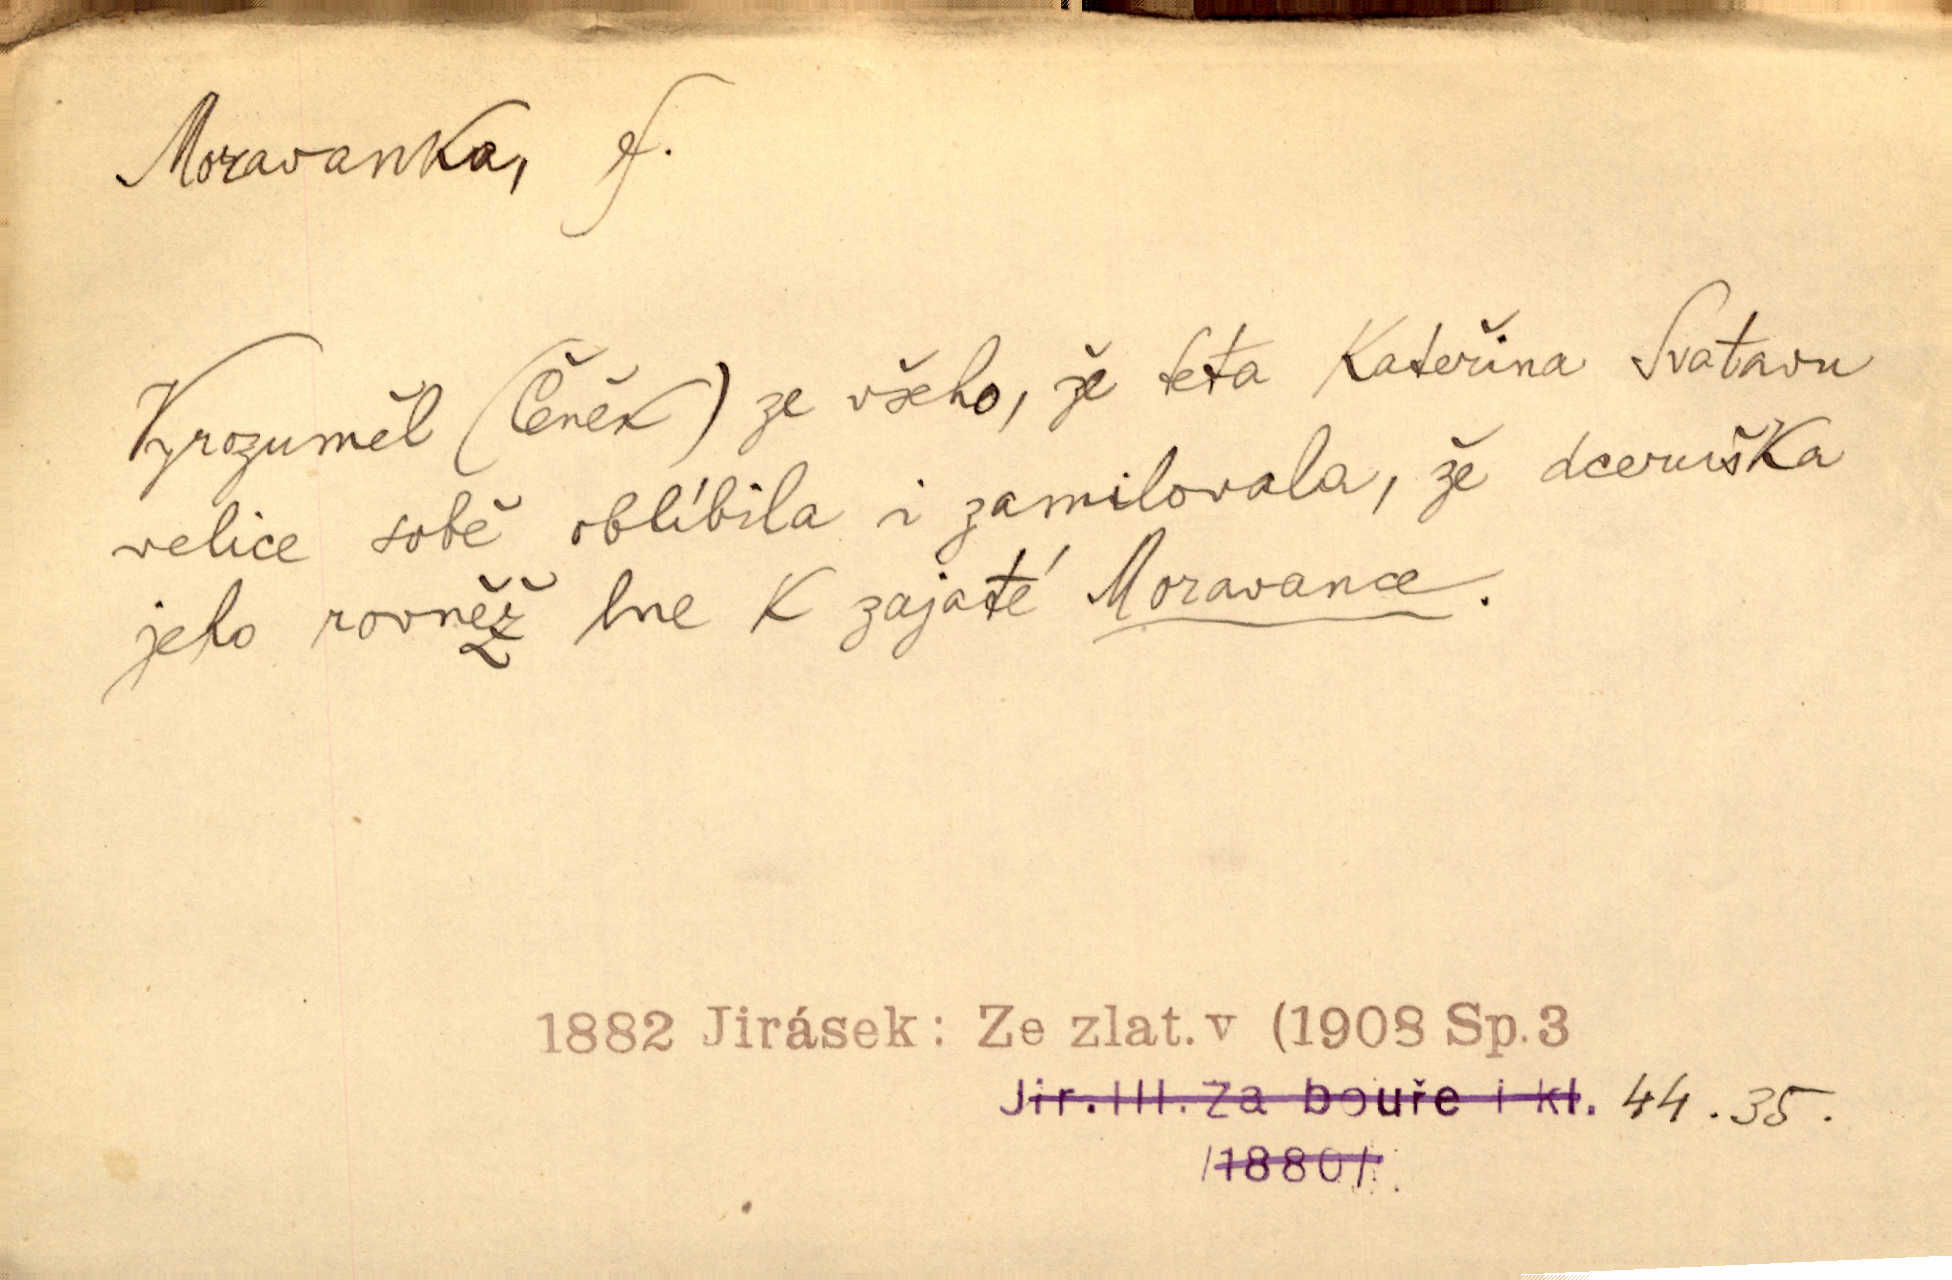 Moravanka, f.
Vyrozuměl (Čeněk) ze všeho, že teta Kateřina Svatavu
velice sobě oblíbila i zamilovala, že dceruška
jeho rovněž lne k zajaté Moravance.
1882 Jirásek: Ze zlat. v (1908 Sp. 3
Jir. III. Za bouře i kl. 44. 35.
/1880/.